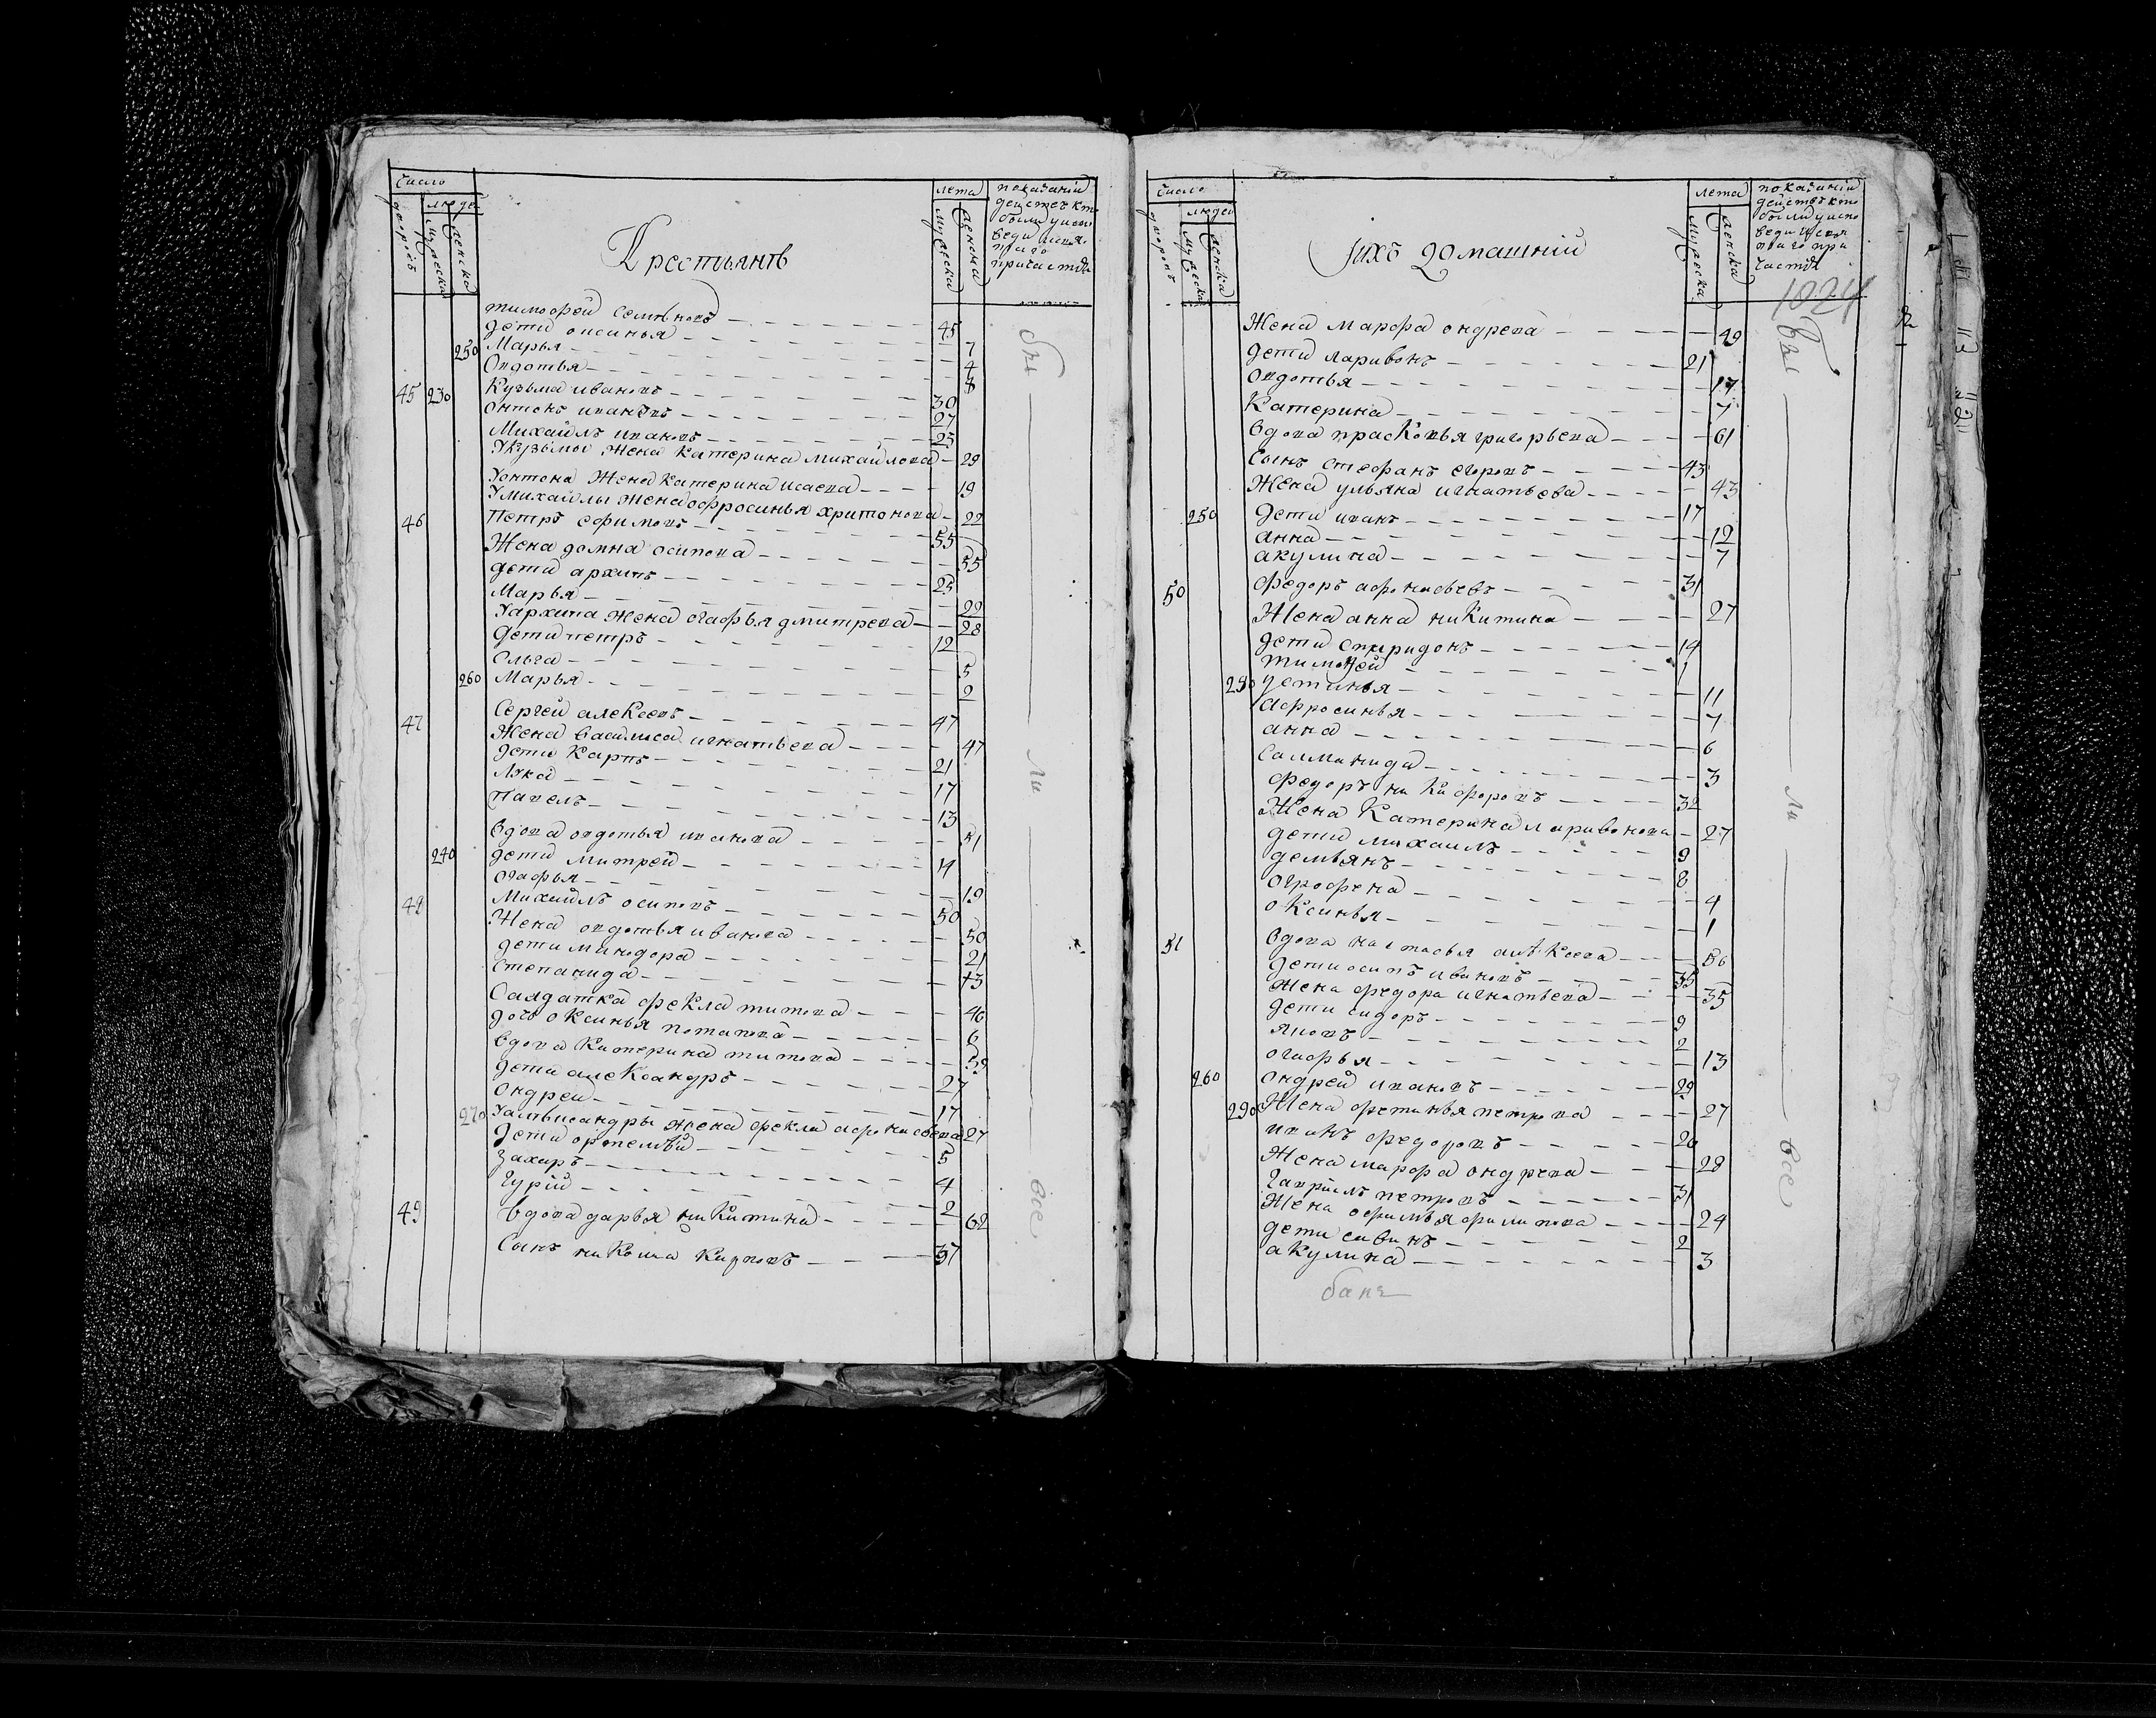 Число
людей
дворовъ
мужеска
женска
Крестьянъ
лета
мужеска
женска
показаніи
действ кто
были у испо
веди и свя
таго
причастія
тимофей Семѣновъ 45
дети оксинья 7
250 Марья 4
Овдотья
45 230 Кузьма ивановъ 30
онтонъ ивановъ 27
Михаилъ ивановъ 25
У кузьмы Жена Катерина Михайлова 29
У онтона Жена Катерина исаева 19
У михаилы Жена офросинья харитонова 22
46 Петръ ефимовъ 55
Жена домна осипова 55
дети архипъ 25
Марья 22
У архипа Жена огафья дмитрева 28
дети петръ 12
Ольга 5
260 Марья 2
47 Сергей алексеевъ 47
Жена василиса игнатьева 47
дети Карпъ 21
Лука 17
Павелъ 13
вдова овдотья иванова 51
240 дети митрей 14
огафья 19
48 Михаилъ осиповъ 50
Жена овдотья иванова 50
дети минодора 21
Степанида 13
Салдатка фекла титова 46
дочь оксинья потапова 6
вдова Катерина титова 53
дети александръ 27
ондрей 17
270 У алѣксандры Жена фекла афонасьева 27
дети ортемѣй 5
Захаръ 4
Гурій 2
49 вдова дарья никитина 62
Сынъ никита Карповъ 37
бы
ли
все
Число
людей
дворовъ
мужеска
женска
ихъ домашніи
лета
мужеска
женска
показаніи
действ кто
были у испо
веди и свя
таго при
частія
1024
Жена Марфа ондрева 49
дети ларивонъ 21
Овдотья 17
Катерина 7
вдова прасковья григорьева 61
Сынъ стефанъ егоровъ 43
Жена ульяна игнатьева 43
250 дети иванъ 17
анна 12
акулина 7
50 федоръ афонасьевъ 31
Жена анна никитина 27
дети спиридонъ 14
тимофей 1
280 устинья 11
афросинья 7
анна 6
Саламанида 3
федоръ никифоровъ 32
Жена Катерина ларивонова 27
дети михаилъ 9
демьянъ 8
огрофена 4
оксинья 1
51 вдова настасья алѣксеева 56
дети осипъ ивановъ 35
Жена федора игнатьева 35
дети сидоръ 9
яковъ 2
огафья 13
260 ондрей ивановъ 29
290 Жена фетинья петрова 27
иванъ федоровъ 26
Жена марфа ондрева 28
Гаврилъ петровъ 31
Жена офимья филипова 24
дети савинъ 2
акулина 3
бы
ли
все